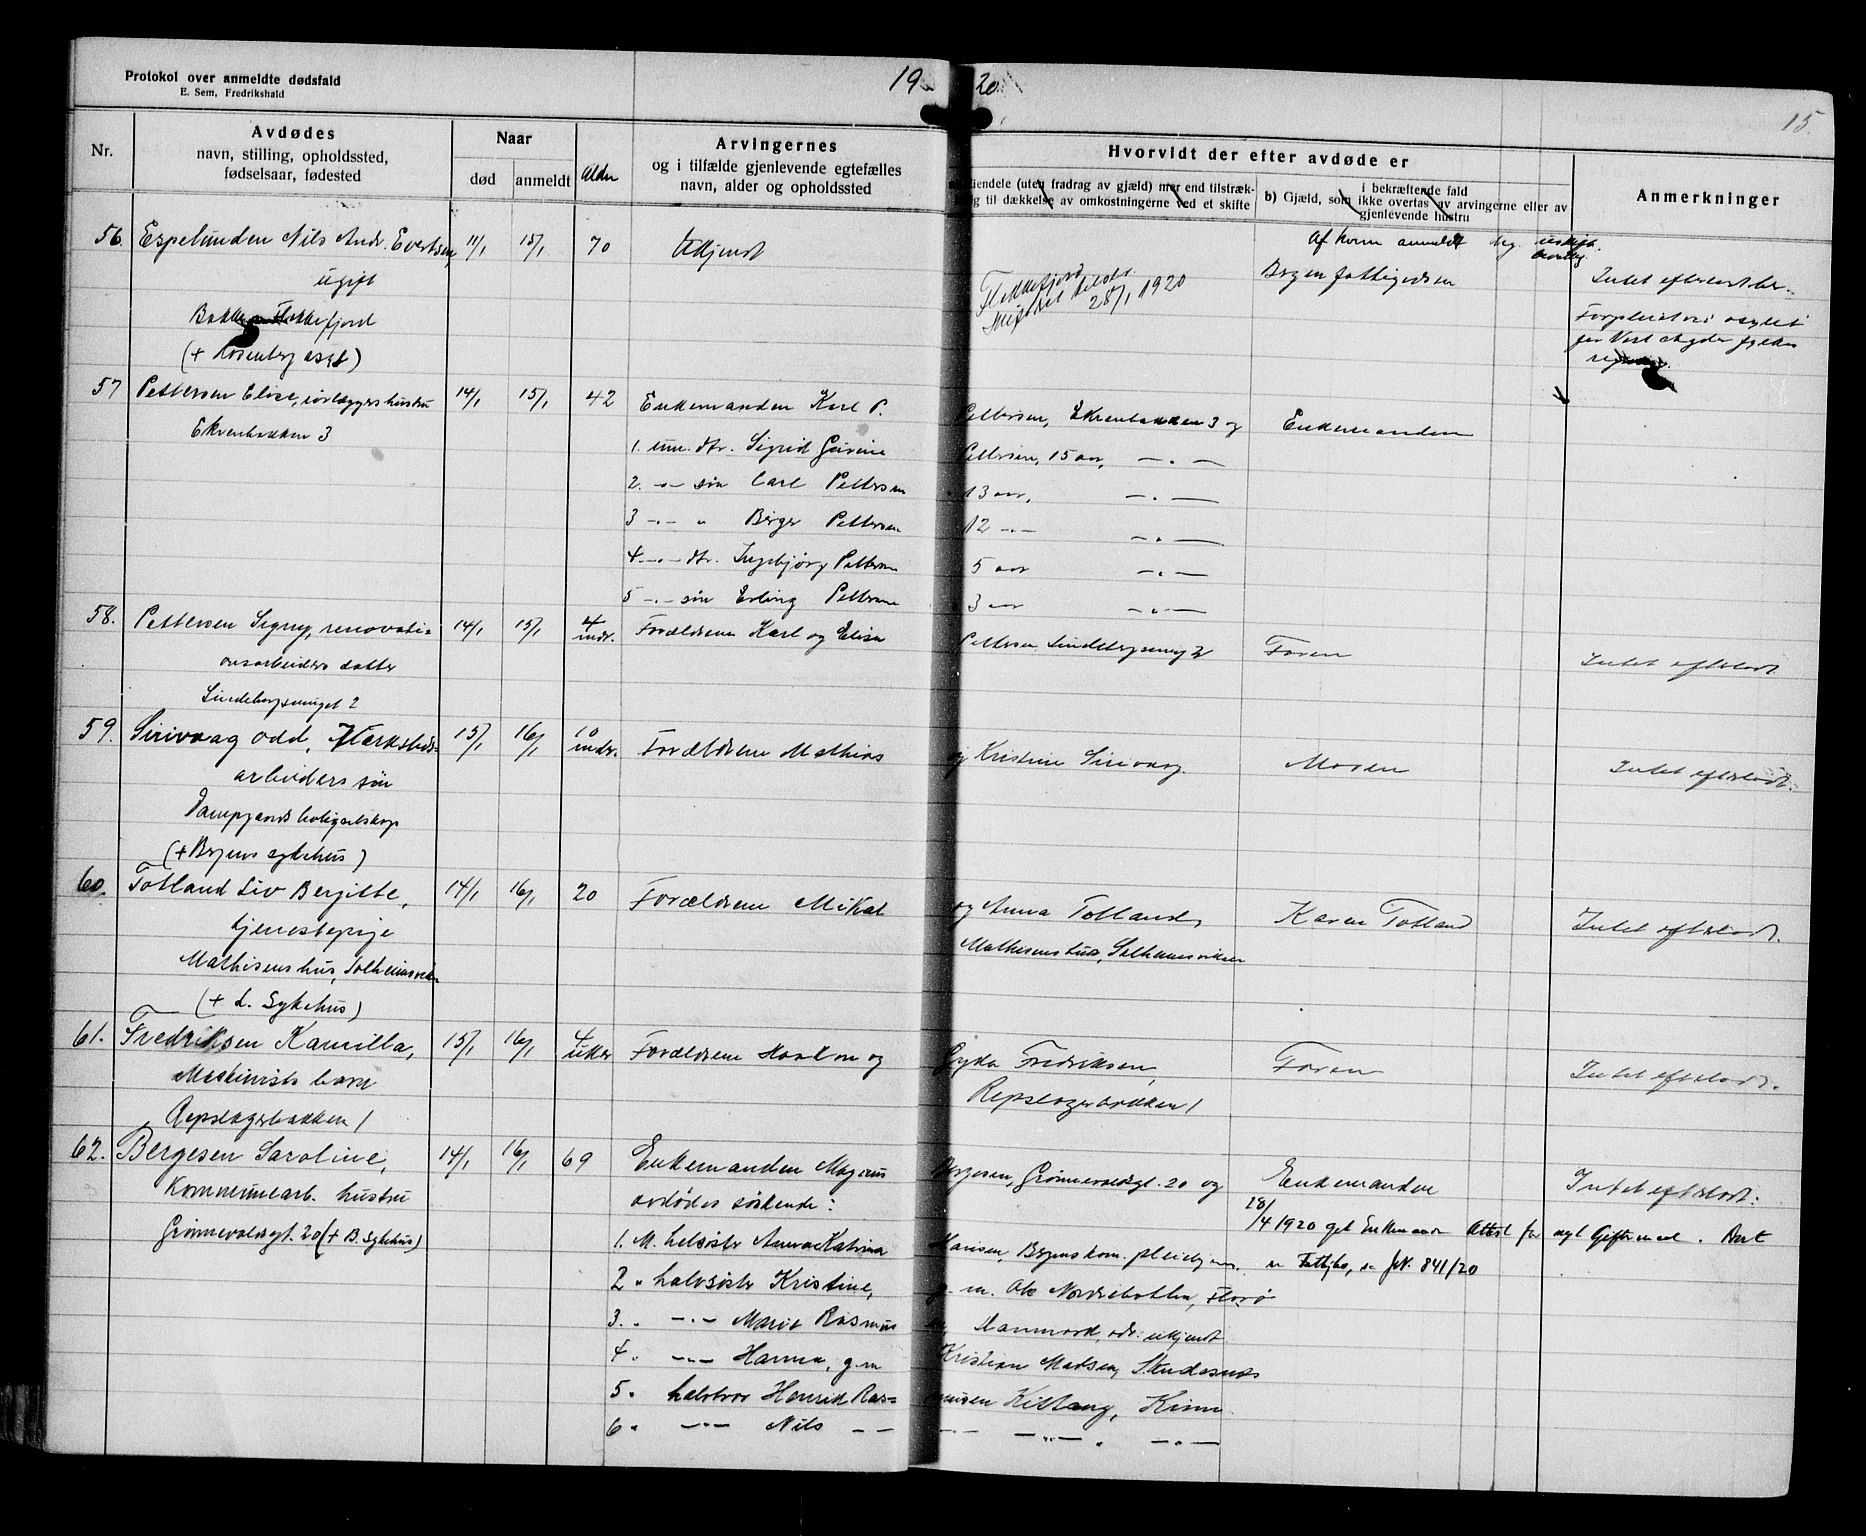 Protokol over anmeldte dødsfald
E. Sem, Fredrikshald
19 20
15.
Nr.
Avdødes
navn, stilling, opholdssted,
fødselsaar, fødested
Naar
død
anmeldt
Alder
Arvingernes
og i tilfælde gjenlevende egtefælles
navn, alder og opholdssted
Hvorvidt der efter avdøde er
eiendele (uten fradrag av gjæld) mer end tilstræk-
til dækkelse av omkostningerne ved et skifte
b) Gjæld, som i bekræftende fald
ikke overtas av arvingerne eller av
gjenlevende hustru
Anmerkninger
56. Espelunden Nils Andr. Evertsen, 11/1 15/1 70 Ukjendt
Af hvem anmeldt
ugift
Flekkefjord
28/1 1920
Bergen fattigvesen
Intet efterladt
Flekkefjord
(+ Rosenberg asyl)
57 Pettersen Elise, hustru 14/1 15/1 42 Enkemanden Karl P. Pettersen, Ekrenbakken 3 og Enkemanden
Ekrenbakken 3
1. um. dtr. Sigrid Pettersen, 15 aar, — . —
2. - . - søn Carl Pettersen 13 aar, — . —
3 - . - " Birger Pettersen 12 - . - — . —
4 - . - dtr. Ingebjørg Pettersen 5 aar — . —
5 - . - søn Erling Pettersen 3 aar — . —
58. Pettersen Signy, renovati- 14/1 15/1 4 mdr. Forældrene Karl og Elise Pettersen Lindebergsmuget 2 Faren Intet efterladt
onsarbeiders datter
Lindebergsmuget 2
59. Sirivaag Odd, Verksteds- 15/1 16/1 10 mndr. Forældrene Mathias og Kristine Sirivaag. Moren Intet efterladt.
arbeiders søn
(+ Bergens sykehus)
60. Totland Liv Bergitte, 14/1 16/1 20 Forældrene Mikal og Anna Totland, Karen Totland Intet efterladt.
tjenestepige
Mathisens hus, Solheimsviken
Mathisens hus, Solheimsviken
(+ L. Sykehus)
61. Fredriksen Kamilla, 15/1 16/1 4 uker Forældrene Haakon og Gyda Fredriksen, Faren Intet efterladt.
Maskinists barn
Repslagerbakken 1
Repslagerbakken 1
62. Bergesen Saroline, 14/1 16/1 69 Enkemanden Magnus Bergesen, Grønnevoldsgt. 20 og Enkemanden Intet efterladt.
Kommunearb. hustru
avdødes søskende:
Grønnevoldsgt. 20 (+ B. Sykehus)
28/4 1920 gik Enkemanden Attest for nyt Giftermaal.
JN. 841/20
1. M. helsøster Anna Katrina Hansen, Bergens kom. pleiehjem.
2 " halvsøster Kristine, g. m. Nordrebotten, Florø
3. " - . - Marie Rasmus adr. ukjendt
4. " - . - Hanna, g. m Kristian Madsen, Skudesnes
5. " halvbror Henrik Rasmussen Kittang, Kinn.
6. " - . - Nils - - — . — — . —